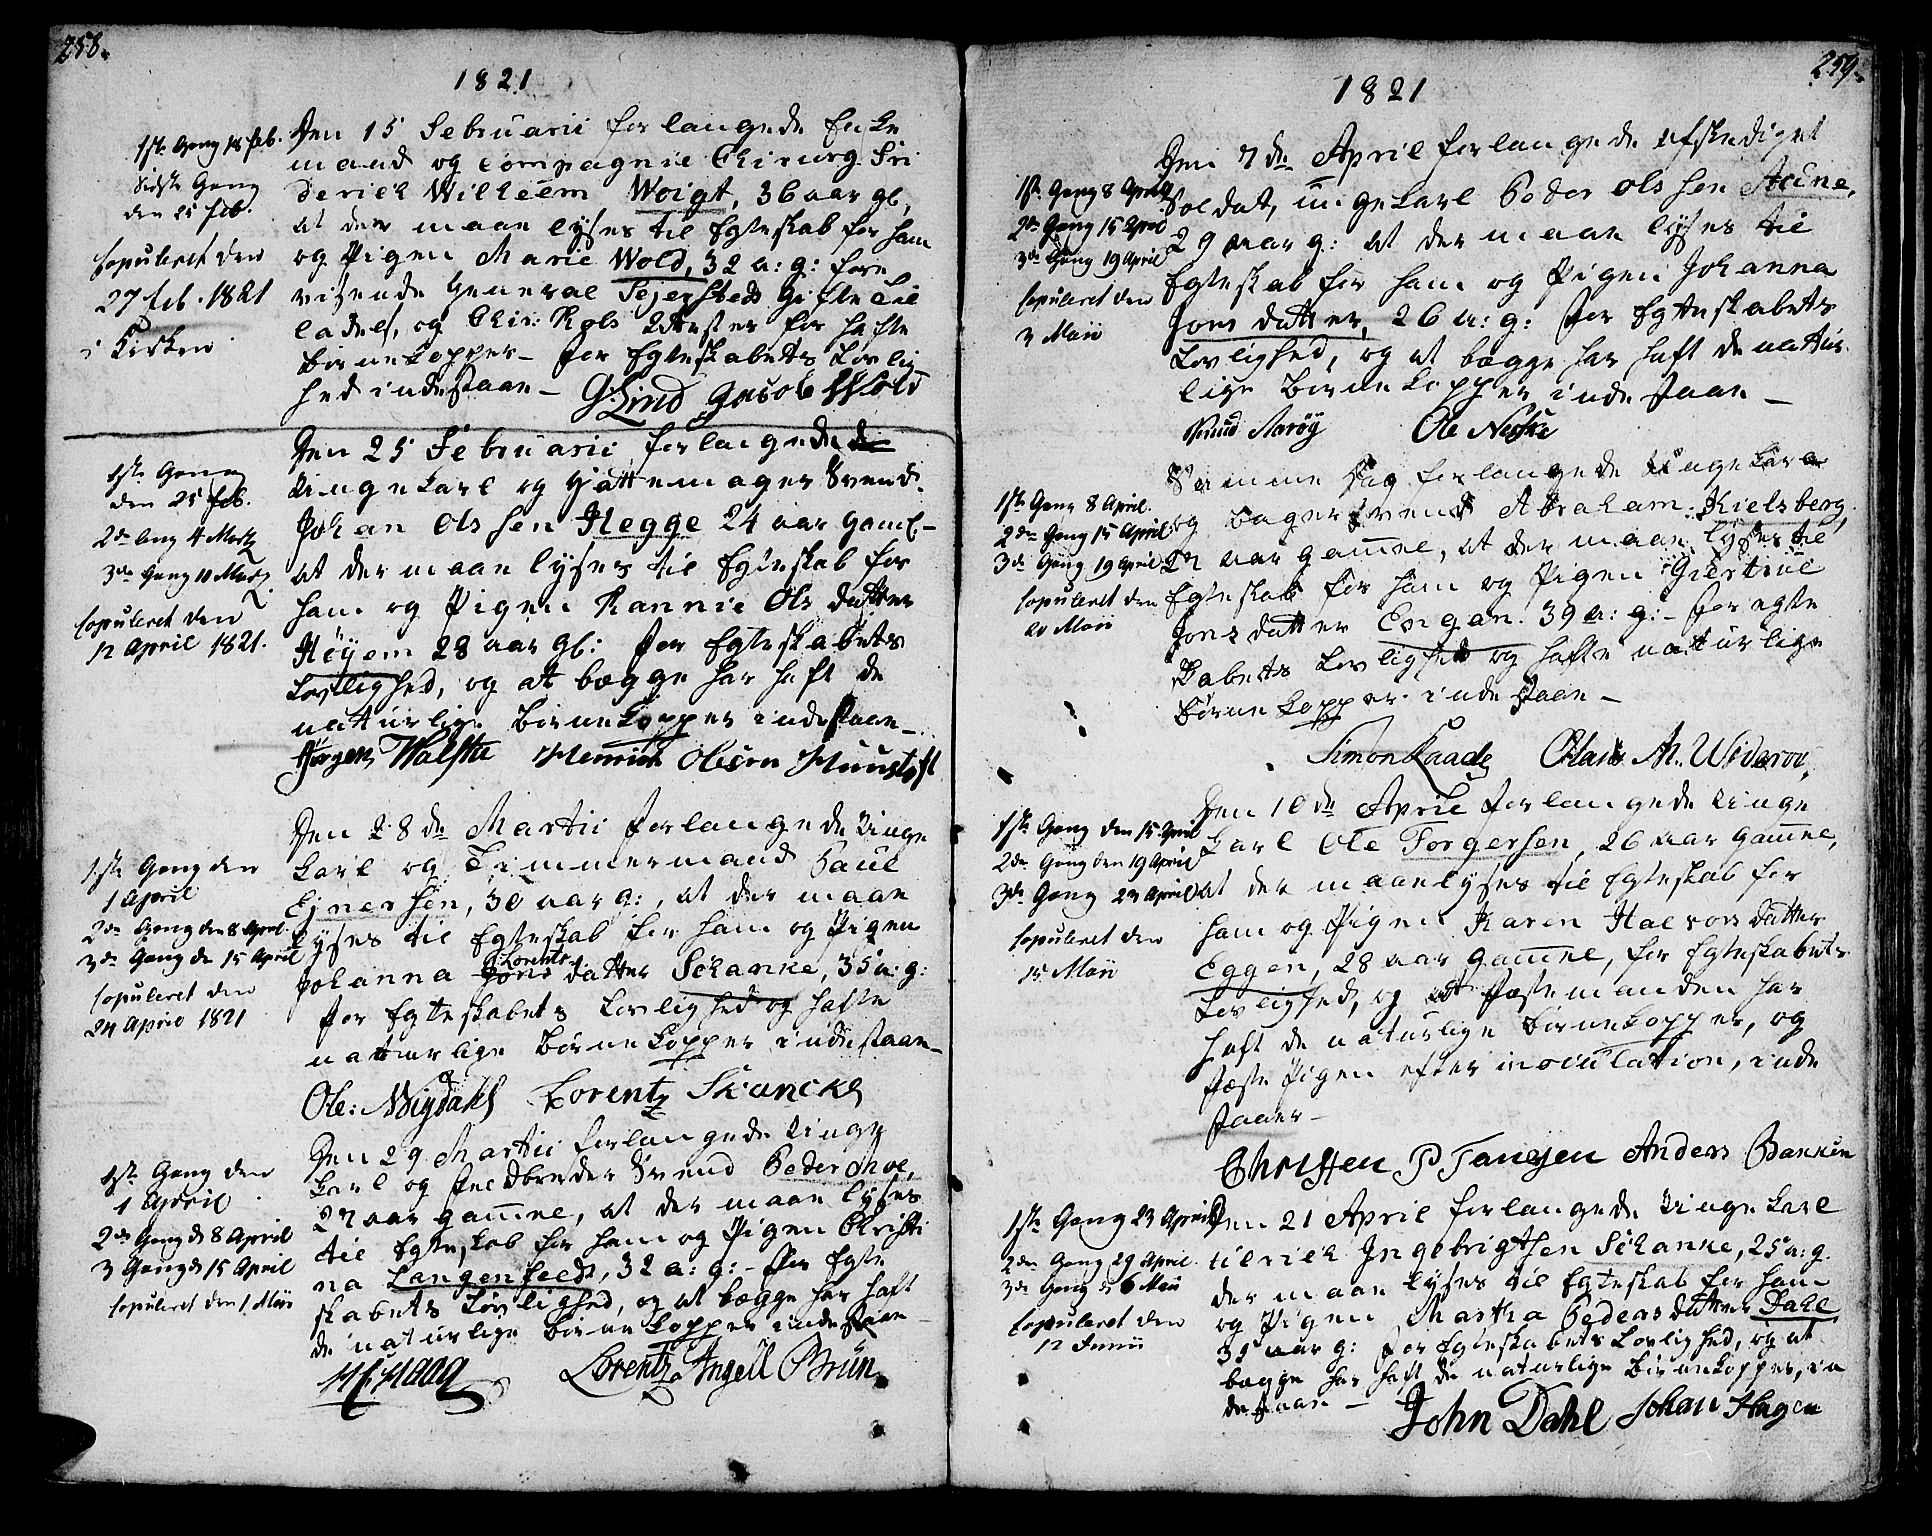 258.
1821
1ste Gang 18 feb.
sidste Gang
den 25 feb.
Copuleret den
27 feb. 1821
i Kirken
Den 15 Februarii forlangede Enke
mand og Compagnie Chirurg Fri
derich Wilhelm Woigt, 36 aar gl,
at der maae lyses til Egteskab for ham
og Pigen Marie Wold, 32 a: g: fore
visende General Sejersteds Gifte Til
ladelse, og Chir: Attester for hafte
Børnekopper – for Egteskabets Lovlig
hed indestaae –
G Lind Jacob Wold
1ste Gang
den 25 feb.
2den Gang 4 Martz
3de Gang 11 Martz
Copuleret den
12 April 1821.
Den 25 Februarii, forlangede
Ungekarl og Hattemager Svend
Johan Olssen Hegge 24 aar gaml –
at der maae lyses til Egteskab for
ham og Pigen Rannie Ols datter
Høyem 28 aar gl: for Egteskabets
Lovlighed, og at begge har haft de
naturlige Børnekopper indestaae –
Jørgen Walstie Henrich Olsen Huustoft
1ste Gang den
1 April
2den Gang den 8 April
3de Gang de 15 April
Copuleret den
24 April 1821
Den 28de Martii forlangede Unge
Karl og Timmermand Paul
Ejnersen, 30 aar g:, at der maae
lyses til Egteskab for ham og Pigen
Lorents
Johanna Jons datter Schanke, 35 a: g:
for Egteskabets Lovlighed og hafte
naturlige Børnekopper indestaae –
Ole: Migdahl Lorentz Skancke
1ste Gang den
1 April
2de Gang d 8 April
3 Gang d 15 April
Copuleret den 1 Maii
Den 29 Martii forlangede Unge
Karl og Feldbereder Svend Peder Moe,
27 aar gamle, at der maae lyses
til Egteskab for ham og Pigen Christi
na Langenfeldt, 32 a: g: – for Egte
skabets Lovlighed, og at begge har haft
de naturlige Børnekopper indestaae –
Lorentz Angell Brun
259.
1821
1st. Gang 8 April
2de Gang 15 April
3de Gang 19 April
Copuleret den
3 Maii
Den 7de April forlangede afskediget
Soldat, ungekarl Peder Olssen Aune,
29 aar g: at der maae lyses til
Egteskab for ham og Pigen Johanna
Jons datter, 26 a: g: for Egteskabets
Lovlighed, og at begge har haft de natur
lige Børnekopper indestaae –
Knud Aarøy Ole Neske
1ste Gang 8 April.
2de Gang 15 April
3de Gang 19 April
Copuleret den
20 Maii
Samme Dag forlangede Ungekarl
og Bagersvend Abraham Kielsberg,
27 aar gamle, at der maae lyses til
Egteskab for ham og Pigen Giertrue
Jons datter Engan. 39 a: g: – for Egte
skabets Lovlighed og hafte naturlige
Børnekopper indestaae –
Simon Kaade Olaus M. Widerøe
1ste Gang den 15 April
2de Gang den 19 April
3de Gang 23 April
Copuleret den
15 Maii
Den 10de April forlangede Unge
Karl Ole Torgersen, 26 aar gamle,
at der maae lyses til Egteskab for
ham og Pigen Karen Halvors datter
Eggen, 28 aar gamle, for Egteskabets
Lovlighed, og at Festemanden har
haft de naturlige Børnekopper, og
FestePigen efter inoculation, inde
staaer –
Christen P Tangen Anders Bakken
1ste Gang 23 April
2de Gang 29 April.
3de Gang d 6 Maii
Copuleret den
12 Junii
Den 21 April forlangede Ungekarl
Ulrich Ingebrigtsen Schanke, 25 a: g.
der maae lyses til Egteskab for ham
og Pigen Martha Peders datter Dahl
35 aar g: for Egteskabets Lovlighed, og at
begge har haft de naturlige Børnekopper, in
destaae –
John Dahl Johan Hagen